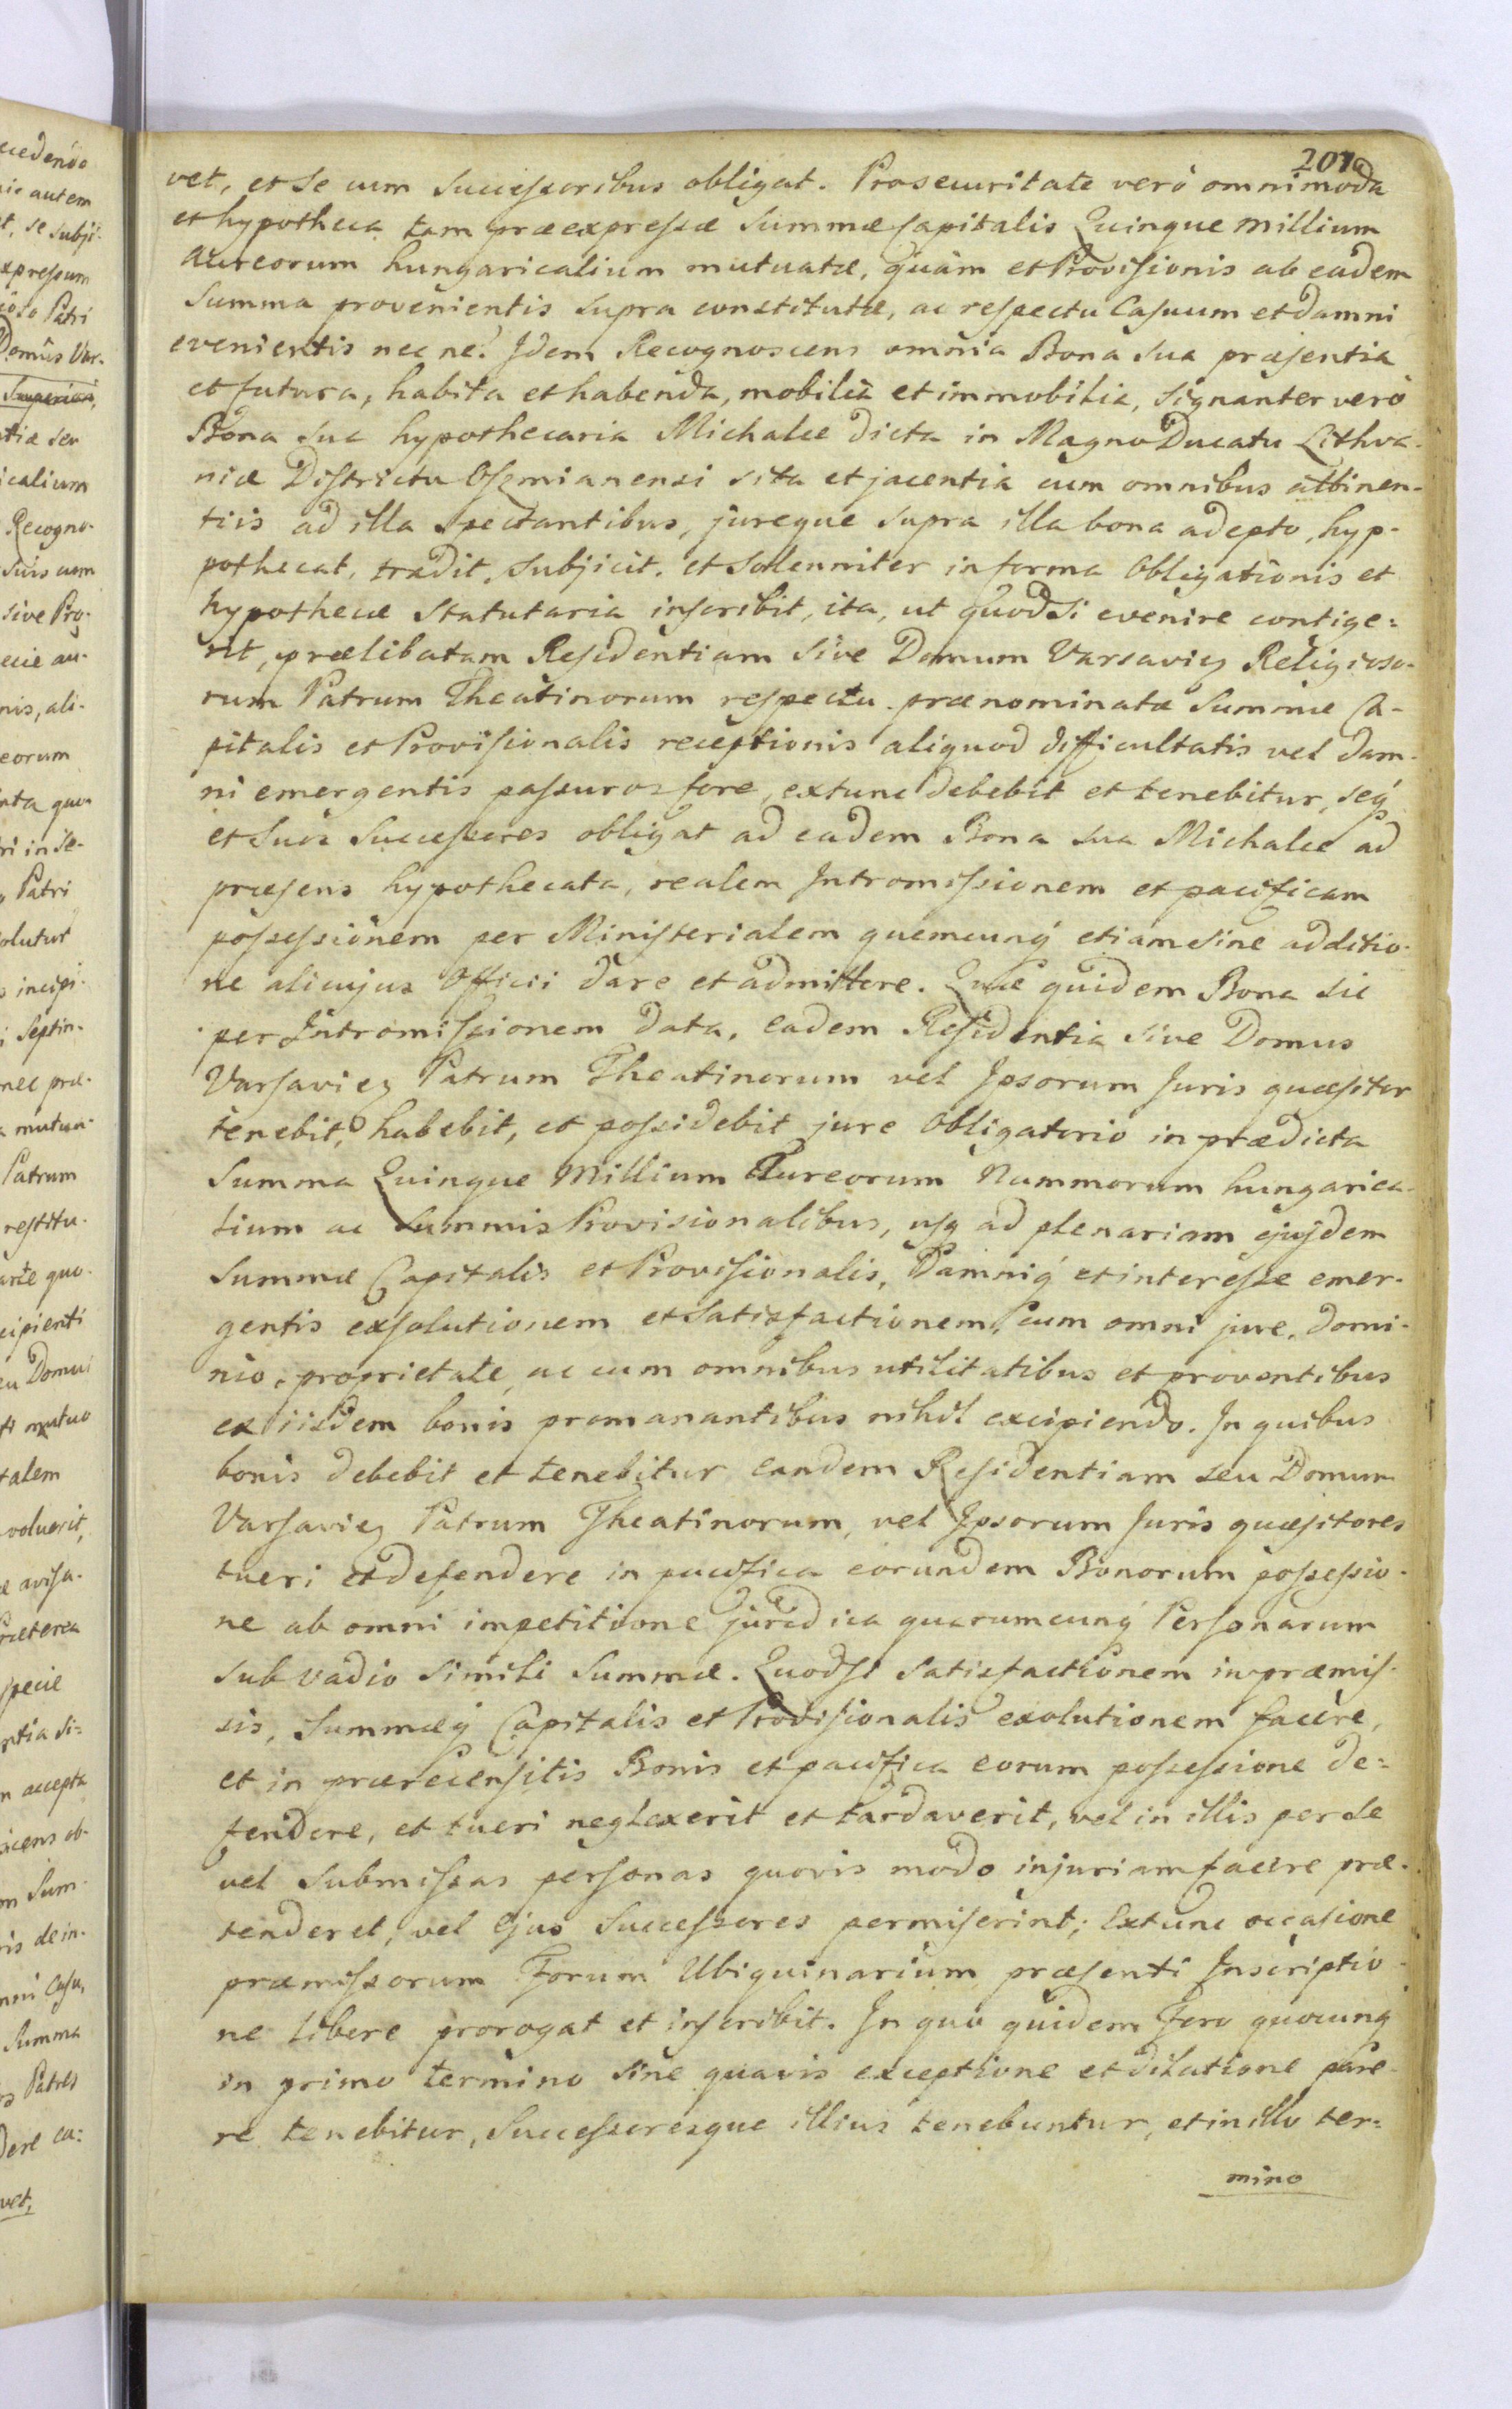 201
vet, et Se cum Successoribus obligat. Pro securitate verò omnimoda
et hypotheca tam præexpressæ Summæ Capitalis Quinque millium
Aureorum hungaricalium mutuatæ, quàm et Provisionis ab eadem
Summa provenientis supra constitutæ, ac respectu Casuum et damni
evenientis nec ne. Idem Recognoscens omnia Bona sua præsentia
et futura, habita et habenda, mobilia et immobilia, signanter verò
Bona sua hypothecaria Michalce dicta in Magno Ducatu Lithva-
niæ Districtu Oszmianensi sita et jacentia cum omnibus attinen-
tiis ad illa spectantibus, jureque supra illa bona adepto, hyp-
pothecat, tradit, subjicit, et solenniter in forma Obligationis et
hypothecæ Statutaria inscribit, ita, ut quodsi evenire contige=
rit, prælibatam Residentiam sive Domum Varsavien Religioso-
rum Patrum Theatinorum respectu prænominatæ Summæ Ca-
pitalis et Provisionalis receptionis aliquod difficultatis vel dam-
ni emergentis passuros fore, extunc debebit et tenebitur, seq
et Suos Successores obligat ad eadem Bona sua Michalce ad
præsens hypothecata, realem Intromissionem et pacificam
possessionem per Ministerialem quemcunq etiam sine additio-
ne alicujus Officii dare et admittere. Quæ quidem Bona sic
per Intromissionem data, eadem Residentia sive Domus
Varsavien Patrum Theatinorum vel Ipsorum Juris quæsitor
tenebit, habebit, et possidebit jure Obligatorio in prædicta
Summa Quinque Millium Aureorum Nummorum hungarica-
lium ac Summis Provisionalibus, usq ad plenariam ejusdem
Summæ Capitalis et Provisionalis, Damniq et interesse emer-
gentis exsolutionem et satisfactionem, cum omni jure, domi-
nio, proprietate, ac cum omnibus utilitatibus et proventibus
ex iisdem bonis promanantibus nihil excipiendo. In quibus
bonis debebit et tenebitur eandem Residentiam seu Domum
Varsavien Patrum Theatinorum, vel Ipsorum Juris quæsitores
tueri et defendere in pacifica eorundem Bonorum possessio-
ne ab omni impetitione juridica quarumcunq Personarum
sub vadio simili Summæ. Quodsi satisfactionem in præmis-
sis, Summæq Capitalis et Provisionalis exolutionem facere,
et in præcensitis Bonis et pacifica eorum possessione de=
fendere, et tueri neglexerit et tardaverit, vel in illis per se
vel submissas personas quovis modo injuriam facere præ-
tenderet, vel Ejus Successores permiserint; Extunc occasione
præmissorum Forum Ubiquinarium præsenti Inscriptio-
ne libere prorogat et inscribit. In quo quidem Foro quocunq
in primo termino sine quavis exceptione et dilatione pare-
re tenebitur, Successoresque illius tenebuntur, et in illo ter=
mino